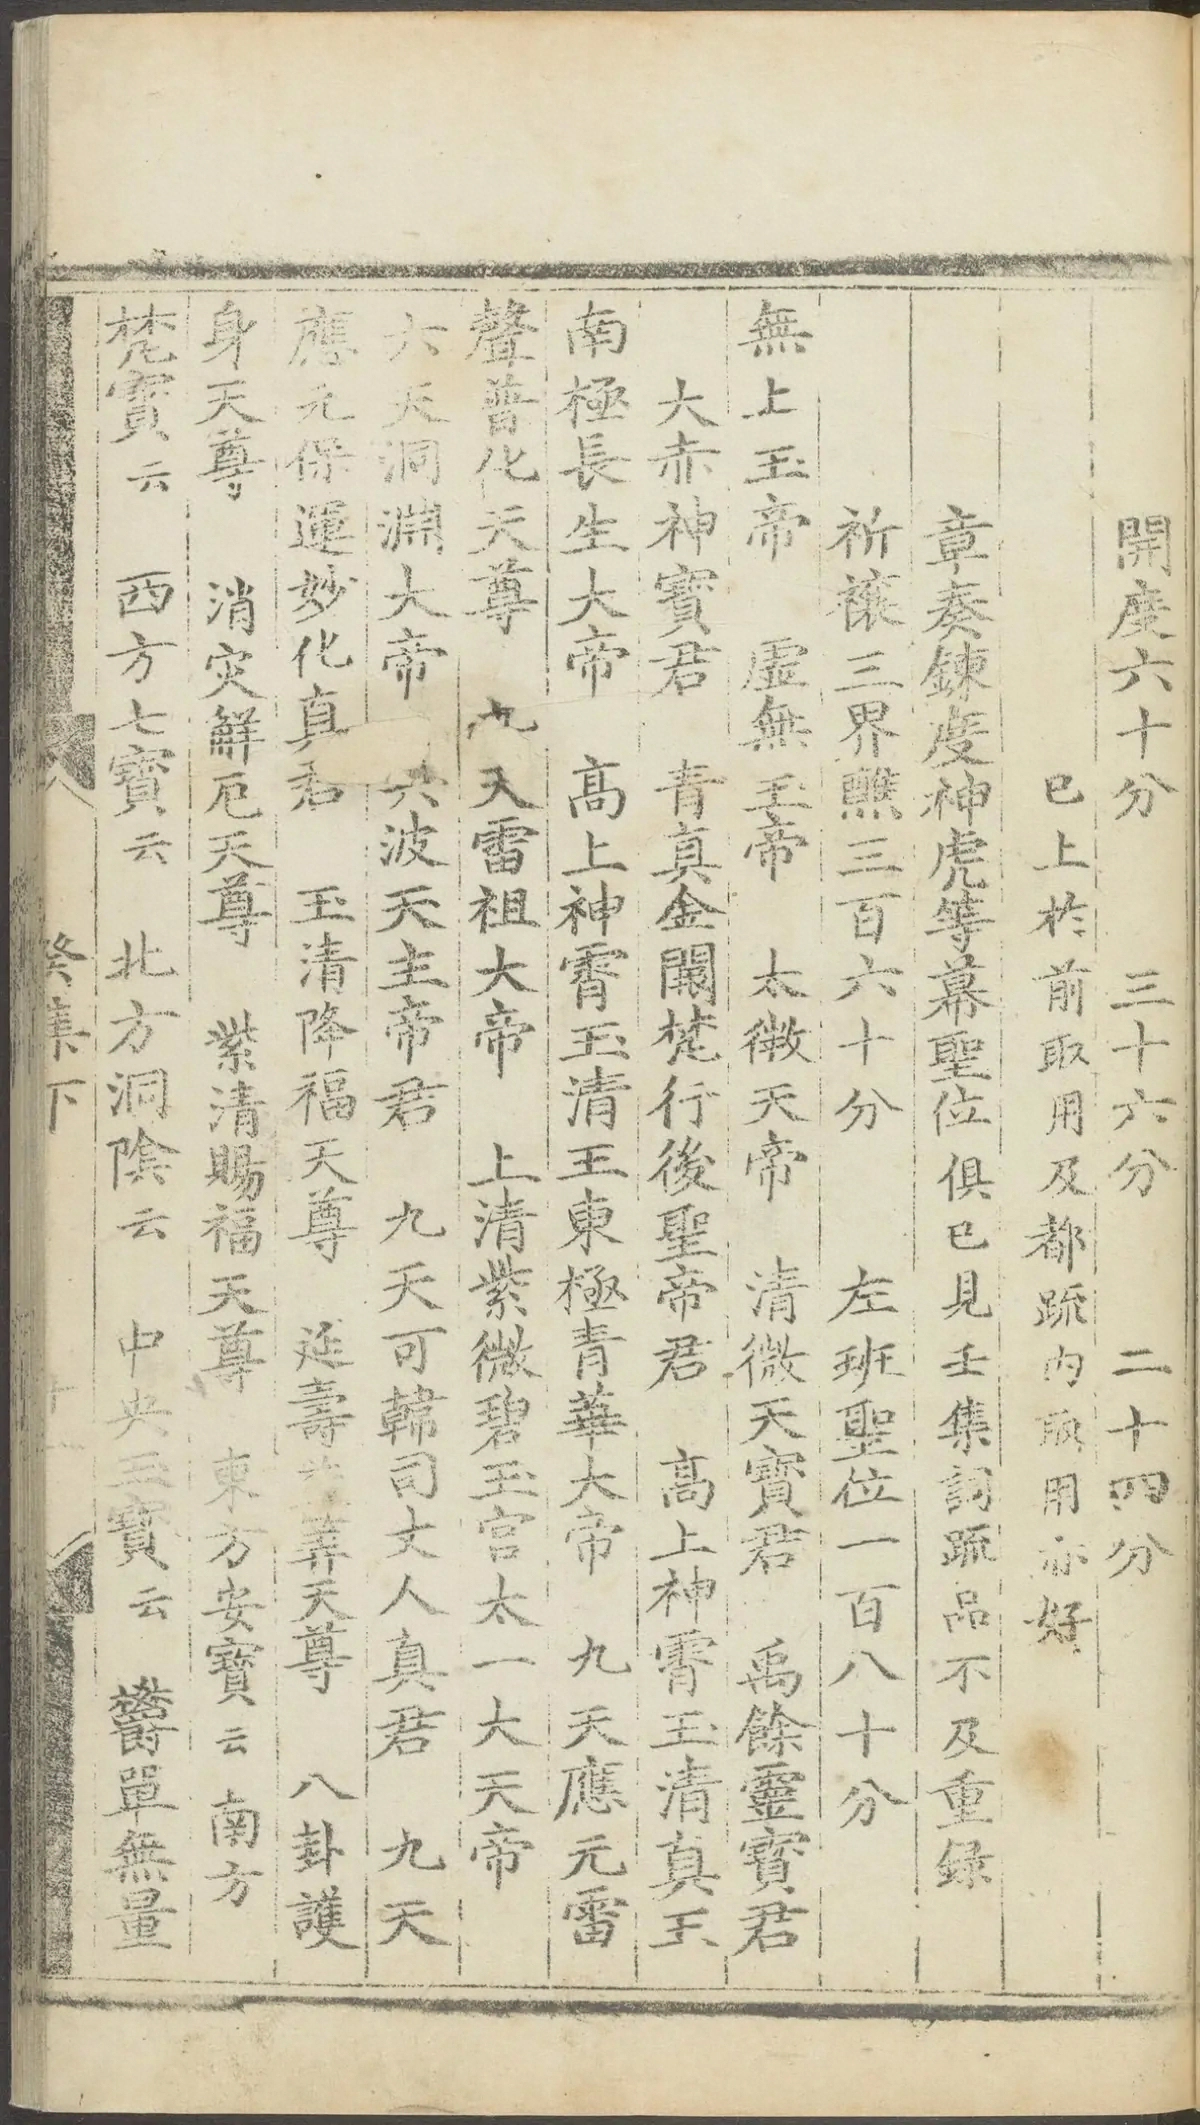 開度六十分　三十六分　二十四分
已上於前取用及都疏内取用亦好
章奏鍊度神虎等幕聖位俱已見壬集詞疏品不及重録
祈禳三界醮三百六十分　左班聖位一百八十分
無上玉帝　虚無玉帝　太微天帝　清微天寳君　禹餘靈寳君
大赤神寳君　青真金闕梵行後聖帝君　高上神霄玉清真王
南極長生大帝　高上神霄玉清王東極青華大帝　九天應元雷
聲普化天尊　九天雷祖大帝　上清紫微碧玉宫太一大天帝
六天洞淵大帝　六波天主帝君　九天可韓司丈人真君　九天
應元保運妙化真君　玉清降福天尊　延壽益筭天尊　八卦護
身天尊　消灾解厄天尊　紫清賜福天尊　東方安寳云　南方
梵寳云　西方七寳云　北方洞陰云　中央玉寳云　欝單無量
癸集下